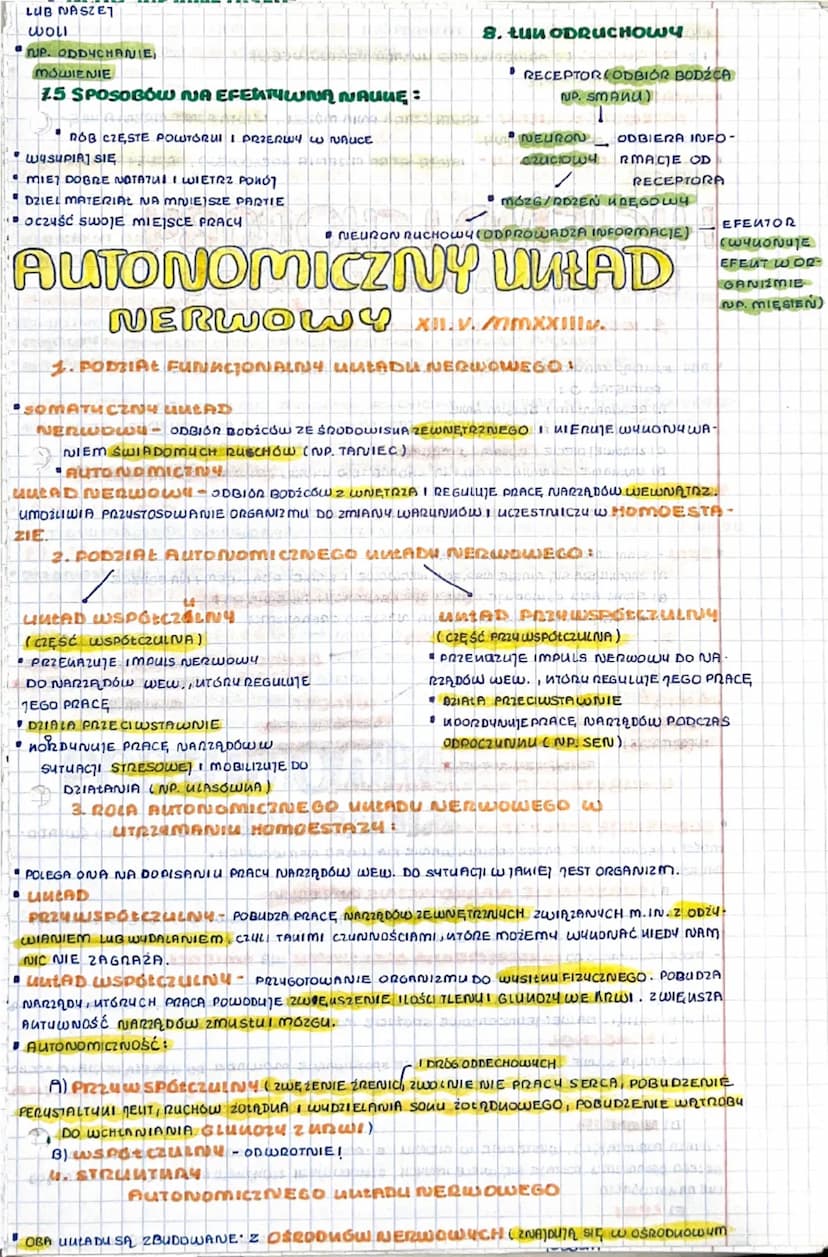 LUB NASZEJ
WOLI
• NP. ODDYCHANIE,
MÓWIENIE
7.5 SPOSOBÓW NA EFEKTYWNĄ NAUKĘ:
• RÓB CZĘSTE POWTÓRKI I PRZERWY W NAUCE
• WYSYPIAJ SIĘ
• MIEJ DOBRE NOTATKI I WIETRZ POKÓJ
• DZIEL MATERIAŁ NA MNIEJSZE PARTIE
• OCZYŚĆ SWOJE MIEJSCE PRACY
8. ŁUK ODRUCHOWY
• RECEPTOR (ODBIÓR BODŹCA
NP. SMAKU)
• NEURON — ODBIERA INFO-
CZUCIOWY RMACJE OD
RECEPTORA
• MÓZG/RDZEŃ KRĘGOWY
• NEURON RUCHOWY (ODPROWADZA INFORMACJE) — EFEKTOR
(WYKONUJE
EFEKT W OR-
GANIŹMIE
NP. MIĘSIEŃ)
AUTONOMICZNY UKŁAD
NERWOWY XII. V. MMXXIIIr.
1. PODZIAŁ FUNKCJONALNY UKŁADU NERWOWEGO:
• SOMATYCZNY UKŁAD
NERWOWY - ODBIÓR BODŹCÓW ZE ŚRODOWISKA ZEWNĘTRZNEGO I KIERUJE WYKONYWA-
NIEM ŚWIADOMYCH RUCHÓW (NP. TANIEC)
• AUTONOMICZNY
UKŁAD NERWOWY - ODBIÓR BODŹCÓW Z WNĘTRZA I REGULUJE PRACĘ NARZĄDÓW WEWNĄTRZ.
UMOŻLIWIA PRZYSTOSOWANIE ORGANIZMU DO ZMIANY WARUNKÓW I UCZESTNICZY W HOMOESTA-
ZIE.
2. PODZIAŁ AUTONOMICZNEGO UKŁADU NERWOWEGO:
UKŁAD WSPÓŁCZULNY
(CZĘŚĆ WSPÓŁCZULNA)
• PRZEKAZUJE IMPULS NERWOWY
DO NARZĄDÓW WEW., KTÓRY REGULUJE
JEGO PRACĘ
• DZIAŁA PRZECIWSTAWNIE
• KOORDYNUJE PRACĘ NARZĄDÓW W
SYTUACJI STRESOWEJ I MOBILIZUJE DO
DZIAŁANIA (NP. KLASÓWKA)
UKŁAD PRZYWSPÓŁCZULNY
(CZĘŚĆ PRZYWSPÓŁCZULNA)
• PRZEKAZUJE IMPULS NERWOWY DO NA-
RZĄDÓW WEW., KTÓRY REGULUJE JEGO PRACĘ
• DZIAŁA PRZECIWSTAWNIE
• KOORDYNUJE PRACĘ NARZĄDÓW PODCZAS
ODPOCZYNKU (NP. SEN)
3. ROLA AUTONOMICZNEGO UKŁADU NERWOWEGO W
UTRZYMANIU HOMOESTAZY:
• POLEGA ONA NA DOPISANIU PRACY NARZĄDÓW WEW. DO SYTUACJI W JAKIEJ JEST ORGANIZM.
• UKŁAD
PRZYWSPÓŁCZULNY - POBUDZA PRACĘ NARZĄDÓW ZEWNĘTRZNYCH ZWIĄZANYCH M.IN. Z ODŻY-
WIANIEM LUB WYDALANIEM, CZYLI TAKIMI CZYNNOŚCIAMI, KTÓRE MOŻEMY WYKONAĆ KIEDY NAM
NIC NIE ZAGRAŻA.
• UKŁAD WSPÓŁCZULNY - PRZYGOTOWANIE ORGANIZMU DO WYSIŁKU FIZYCZNEGO. POBUDZA
NARZĄDY, KTÓRYCH PRACA POWODUJE ZWIĘKSZENIE ILOŚCI TLENU I GLUKOZY WE KRWI. ZWIĘKSZA
AKTYWNOŚĆ NARZĄDÓW ZMYSŁU I MÓZGU.
• AUTONOMICZNOŚĆ:
I DRÓG ODDECHOWYCH
A) PRZYWSPÓŁCZULNY (ZWĘŻENIE ŹRENIC, ZWOLNIENIE PRACY SERCA, POBUDZENIE
PERYSTALTYKI JELIT, RUCHÓW ŻOŁĄDKA I WYDZIELANIA SOKU ŻOŁĄDKOWEGO, POBUDZENIE WĄTROBY
DO WCHŁANIANIA GLUKOZY Z KRWI)
B) WSPÓŁCZULNY - ODWROTNIE!
4. STRUKTURY
AUTONOMICZNEGO UKŁADU NERWOWEGO
• OBA UKŁADY SĄ ZBUDOWANE: Z OŚRODKÓW NERWOWYCH (ZNAJDUJĄ SIĘ W OŚRODKOWYM